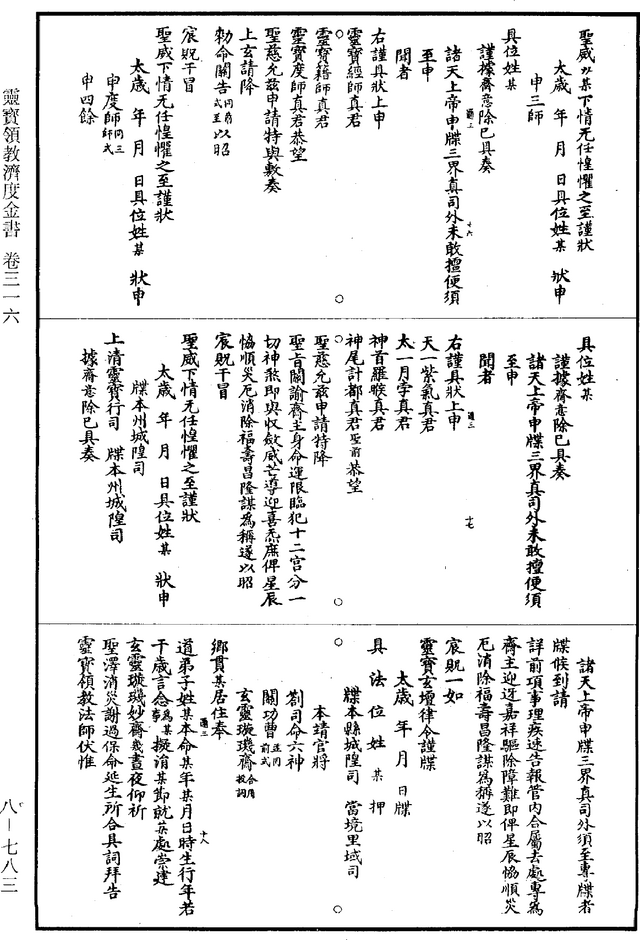 聖威以某下情无任惶懼之至謹狀
太歲　年　月　日具位姓某　狀申
申三師
具位姓某
謹據齋意除已具奏
諸天上帝申牒三界真司外未敢擅便須
至申
聞者
右謹具狀上申
靈寶經師真君
靈寶籍師真君
靈寶度師真君恭望
聖慈允茲申請特與敷奏
上玄請降
勑命關告同前式至以昭
宸貺干冒
聖威下情无任惶懼之至謹狀
太歲　年　月　日具位姓某　狀申
申度師同三師式
申四餘
具位姓某
謹據齋意除已具奏
諸天上帝申牒三界真司外未敢擅便須
至申
聞者
右謹具狀上申
天一紫氣真君
太一月孛真君
神首羅睺真君
神尾計都真君聖前恭望
聖慈允茲申請特降
聖旨關諭齋主身命運限臨犯十二宮分一
切神煞即與收斂威芒導迎喜炁庶俾星辰
恊順災厄消除福壽昌隆謀為稱遂以昭
宸貺干冒
聖威下情无任惶懼之至謹狀
太歲　年　月　日具位姓某　狀申
牒本州城隍司
上清靈寶行司　牒本州城隍司
據齋意除已具奏
諸天上帝申牒三界真司外須至專牒者
牒候到請
詳前項事理疾速告報管內合屬去處專為
齋主迎迓嘉祥驅除障難即俾星辰恊順災
厄消除福壽昌隆謀為稱遂以昭
宸貺一如
靈寶玄壇律令謹牒
太歲　年　月　日牒
具　法　位　姓　某　押
牒本縣城隍司　當境里域司
本靖官將
劄司命六神
關功曹並同前式
玄靈璇璣齋合用投詞
鄉貫某居住奉
道弟子姓某本命某年某月日時生行年若
干歲言念為某事擬涓某節就某處崇建
玄靈璇璣妙齋幾晝夜仰祈
聖澤消災謝過保命延生所合具詞拜告
靈寶領教法師伏惟
靈寶領教濟度金書　卷三一六
八－七八三